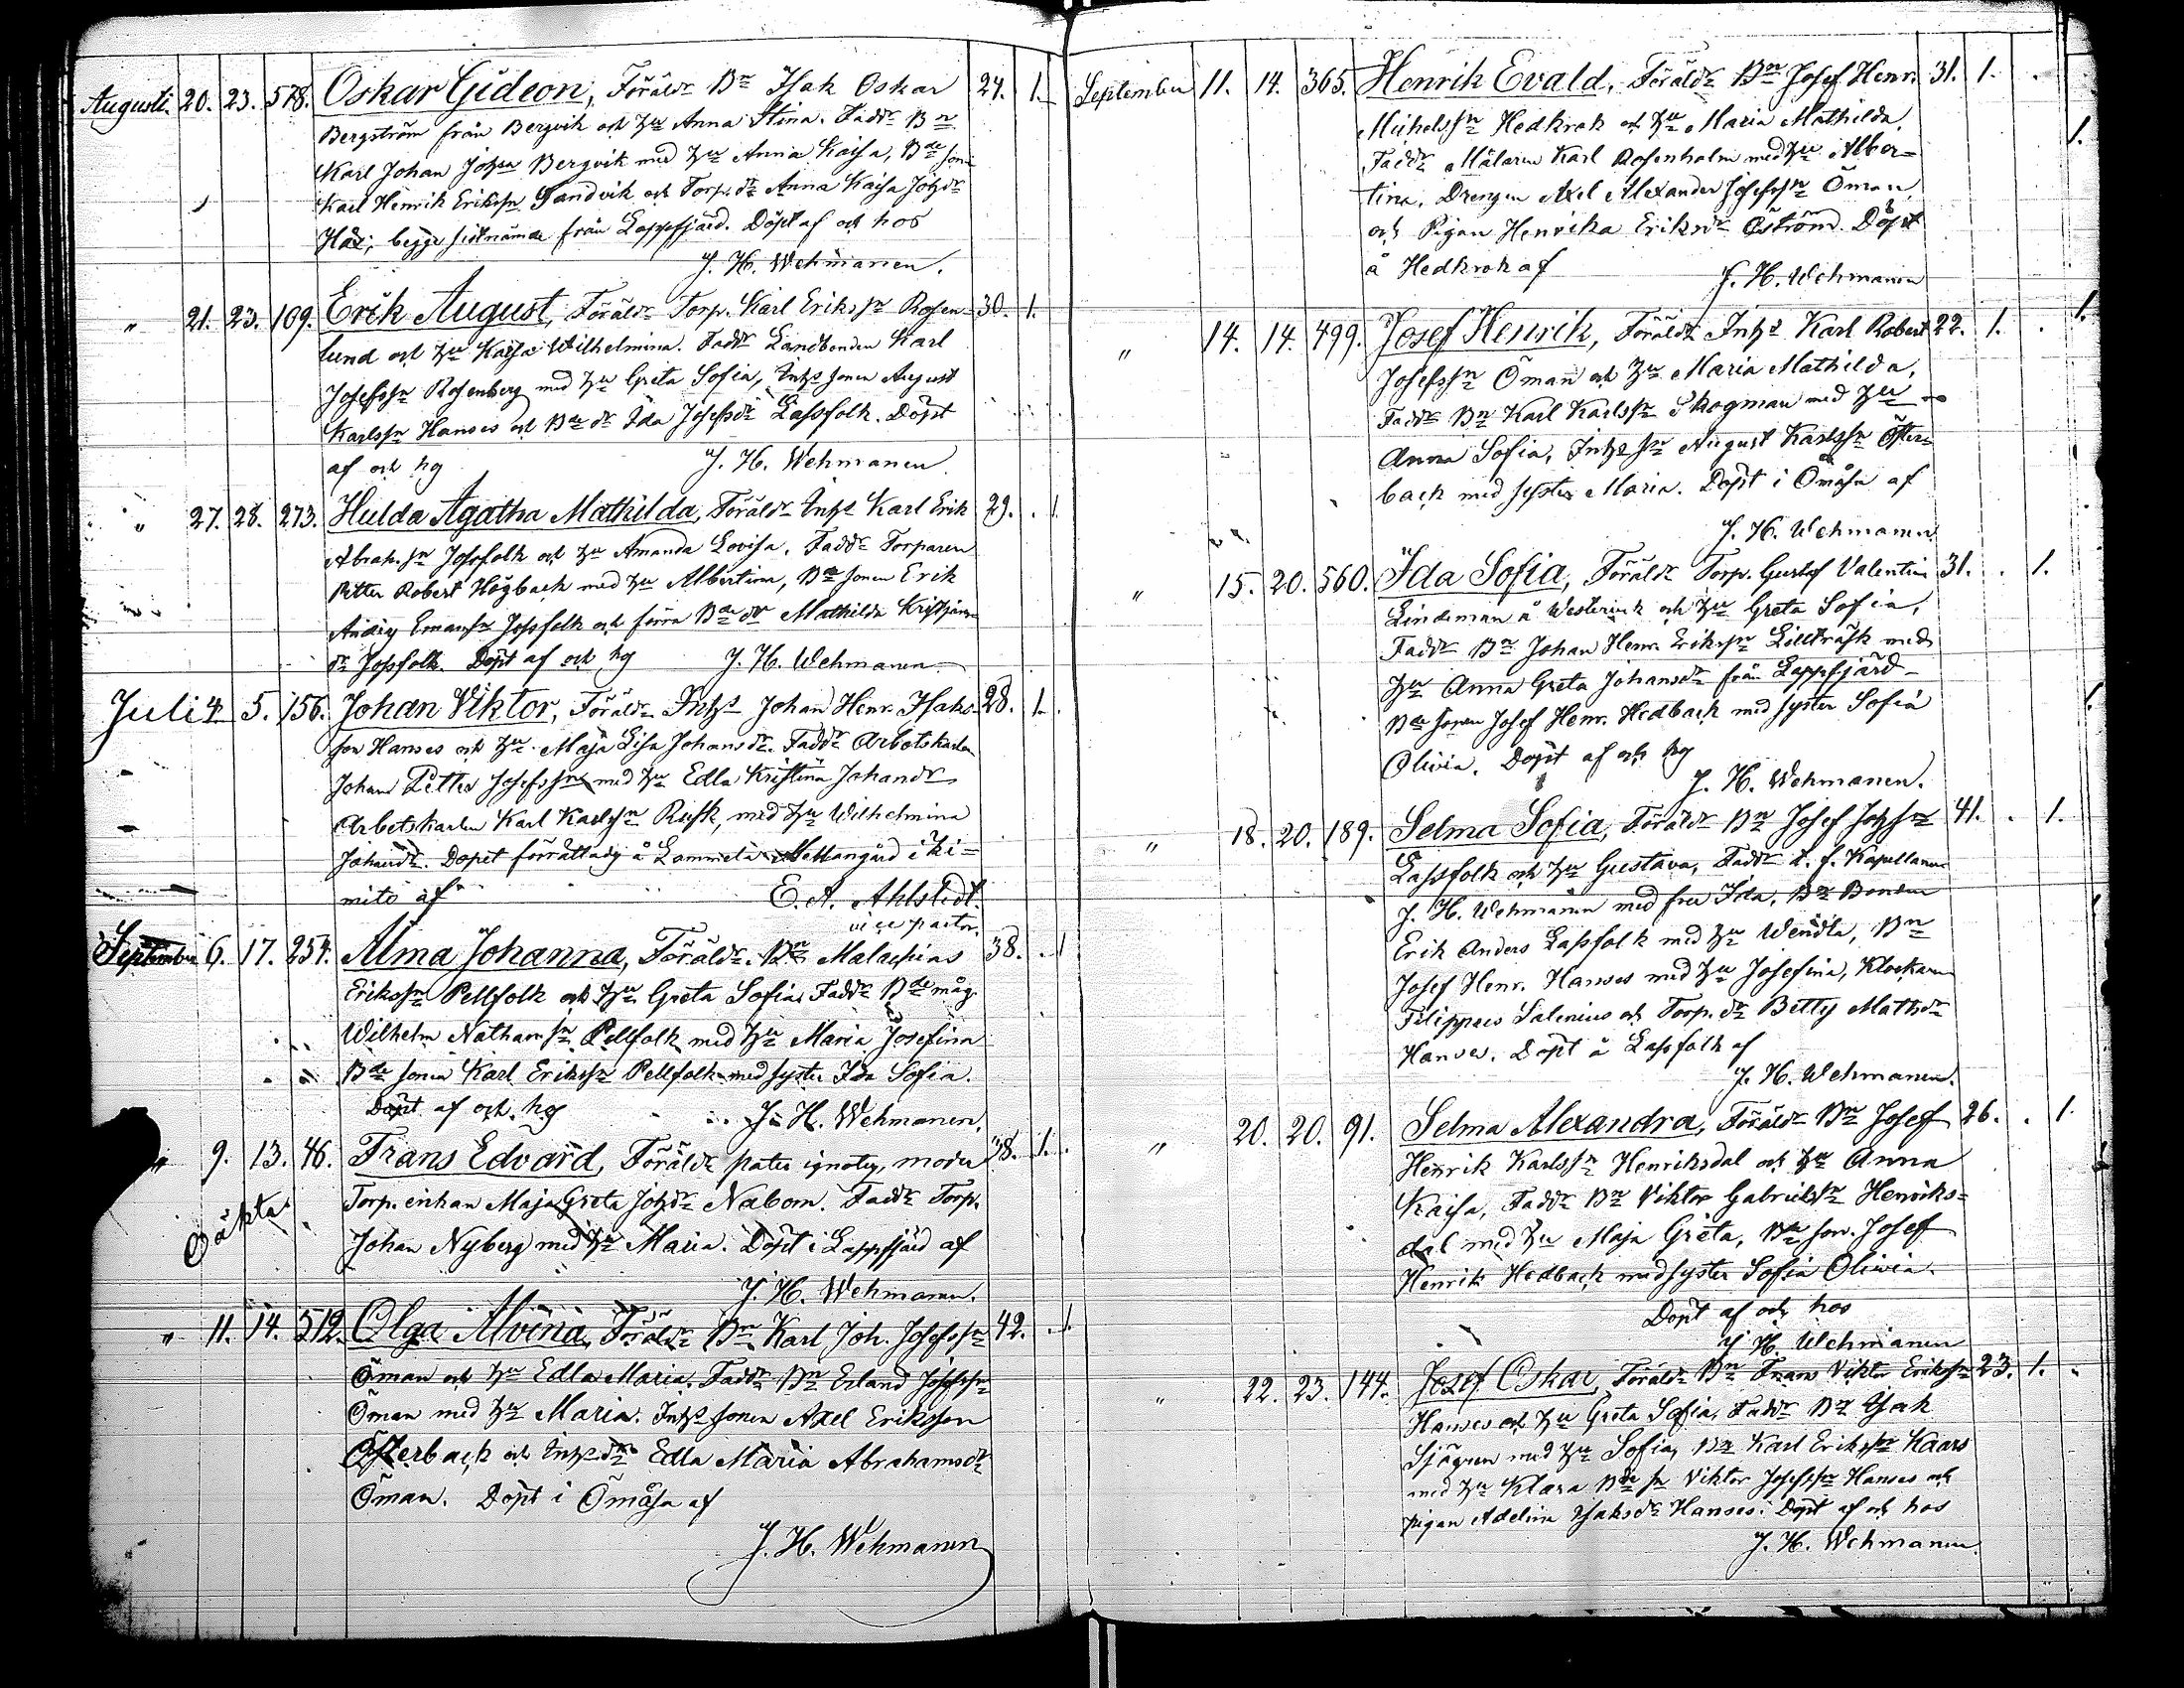 Augusti. 20. 23. 578. Oskar Gideon, Föräldr Bn Isak Oskar 24. 1.
Bergström från Bergvik och hu Anna Stina. Faddr Bn
Karl Johan Johsn Bergvik med hu Anna Kajsa, Bde sone
Karl Henrik Erikssn Sandvik och Torp. dr Anna Kajsa Johdr
begge sistnämde från Lappfjärd. Döpt af och hos
J. H. Wehmanen.
" 21. 23. 109. Erik August, Föräldr Torp. Karl Erikssn Rosen- 30. 1.
lund och hu Kajsa Wilhelmina. Faddr Landbonden Karl
Josefssn Rosenberg med hu Greta Sofia, Inhs sonen August
Karlssn Hanses och Bde dr Ida Josefsdr Lassfolk. Döpt
af och hg J. H. Wehmanen
" 27. 28. 273. Hulda Agatha Mathilda, Föräldr Inhs Karl Erik 29. . 1.
Abrah.sn Jossfolk och hu Amanda Lovisa. Faddr Torparen
Petter Robert Högback med hu Albertina, Bde sonen Erik
Emansn Jossfolk och förra Bde dr Mathilda Kristjans
dr Jossfolk. Döpt af och hg J. H. Wehmanen
Juli 4. 5. 156. Johan Viktor, Föräldr Inhs Johan Henr. Isaks- 28. 1.
son Hanses och hu Maja Lisa Johansdr. Faddr Arbetskarlen
Johan Petter Josefssn med hu Edla Kristina Johandr
Arbetskarlen Karl Karlssn Rusk, med hu Wilhelmina
Johandr. Dopet förrättadt å Lammela Mellangård i Ki-
mito af E. A. Ahlstedt.
vice pastor.
September 6. 17. 254. Alma Johanna, Föräldr. Bn Malachias 38. . 1
Erikssn Pellfolk och hu Greta Sofia, Faddr Bde måg
Wilhelm Nathansn Pellfolk med hu Maria Josefina
Bde sonen Karl Erikssn Pellfolk med syster Ida Sofia.
Döpt af och hg J. H. Wehmanen.
" 9. 13. 46. Frans Edvard, Föräldr pater ignotus, moder 38. 1.
Oäkta. Torp. enkan Maja Greta Johdr Nabom. Faddr Torp.
Johan Nyberg med hu Maria. Döpt i Lappfjärd af
J. H. Wehmanen.
" 11. 14. 512. Olga Alvina, Föräldr Bn Karl Joh. Josefssn 42. . 1.
Öman och hu Edla Maria. Faddr Bn Erland Josefssn
Öman med hu Maria. Inhs sonen Axel Eriksson
Österback och Inhs dr Edla Maria Abrahamsdr
Öman. Döpt i Ömåsa af
J. H. Wehmanen
September 11. 14. 365. Henrik Evald, Föräldr Bn Josef Henr. 31. 1. .
Michelssn Hedkrok och hu Maria Mathilda.
Faddr Målaren Karl Rosenholm med hu Alber-
tina, Drengen Axel Alexander Josefssn Öman
och Pigan Henrika Eriksdr Öström. Döpt
å Hedkrok af J. H. Wehmanen
" 14. 14. 499. Josef Henrik, Föräldr Inhs Karl Robert 22. 1. .
Josefssn Öman och hu Maria Mathilda,
Faddr Bn Karl Karlssn Skogman med hu
Anna Sofia, Inhs sn August Karlssn Öster-
back med syster Maria. Döpt i Ömåsa af
J. H. Wehmanen
" 15. 20. 560. Ida Sofia, Föräldr Torp. Gustaf Valentin 31. . 1.
Lindeman å Westervik och hu Greta Sofia,
Faddr Bn Johan Henr. Erikssn Lillträsk med
hu Anna Greta Johansdr från Lappfjärd
Bde sonen Josef Henr. Hedback med syster Sofia
Olivia. Döpt af och hg
J. H. Wehmanen.
" 18. 20. 189. Selma Sofia, Föräldr Bn Josef Johssn 41. . 1.
Lassfolk och hu Gustava, Faddr t. f. Kapellanen
J. H. Wehmanen med fru Ida, Bn Bonden
Erik Anders Lassfolk med hu Wendla, Bn
Josef Henr. Hanses med hu Josefina, Klockaren
Filippus Salenius och Torp. dr Betty Mathsdr
Hanses. Döpt å Lassfolk af
J. H. Wehmanen.
" 20. 20. 91. Selma Alexandra, Föräldr Bn Josef 26. . 1.
Henrik Karlssn Henriksdal och hu Anna
Kajsa, Faddr Bn Viktor Gabrielssn Henriks-
dal med hu Maja Greta, Bde son. Josef
Henrik Hedback med syster Sofia Olivia.
Döpt af och hos
J. H. Wehmanen
" 22. 23. 144. Josef Oskar, Föräldr Bn Frans Viktor Erikssn 23. 1. .
Hanses och hu Greta Sofia, Faddr Bn Isak
Sjögren med hu Sofia, Bn Karl Erikssn Kaars
med hu Klara Bde sn Viktor Josefssn Hanses och
pigan Adelina Isaksdr Hanses. Döpt af och hos
J. H. Wehmanen.